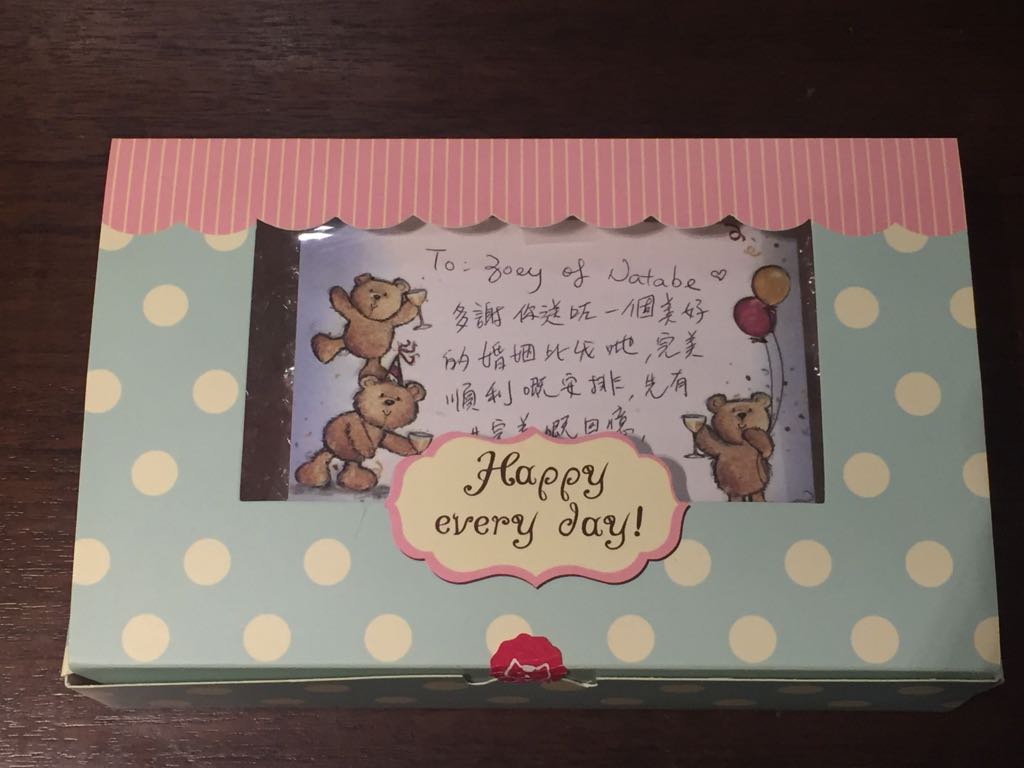 To: Zoey of Watabe ♡
多謝你送咗一個美好
的婚姻比我哋,完美
順利嘅安排,先有
完美嘅回憶,
Happy
every day!